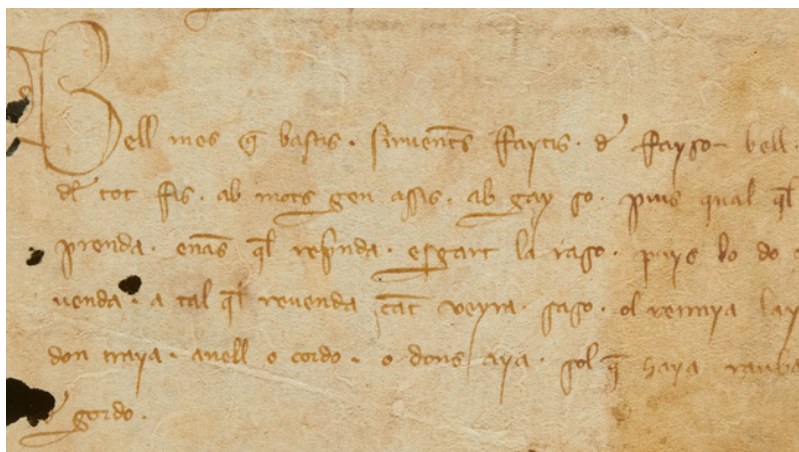 Bell mes q̄ bastis · siruent̄s ffaytis · d' ffayso bell ·
dl̄ tot fis · ab mots gen assis · ab gay so · pus qual ql̄
prenda · enas̄ ql̄ rep̄nda · esgart la rago · puys lo do
uenda · a tal ql̄ reuenda cāt veyra · saso · ol renuya lay
don traya · anell o cordo · o dons aya · sol q̄ haya rauba
gordo ·